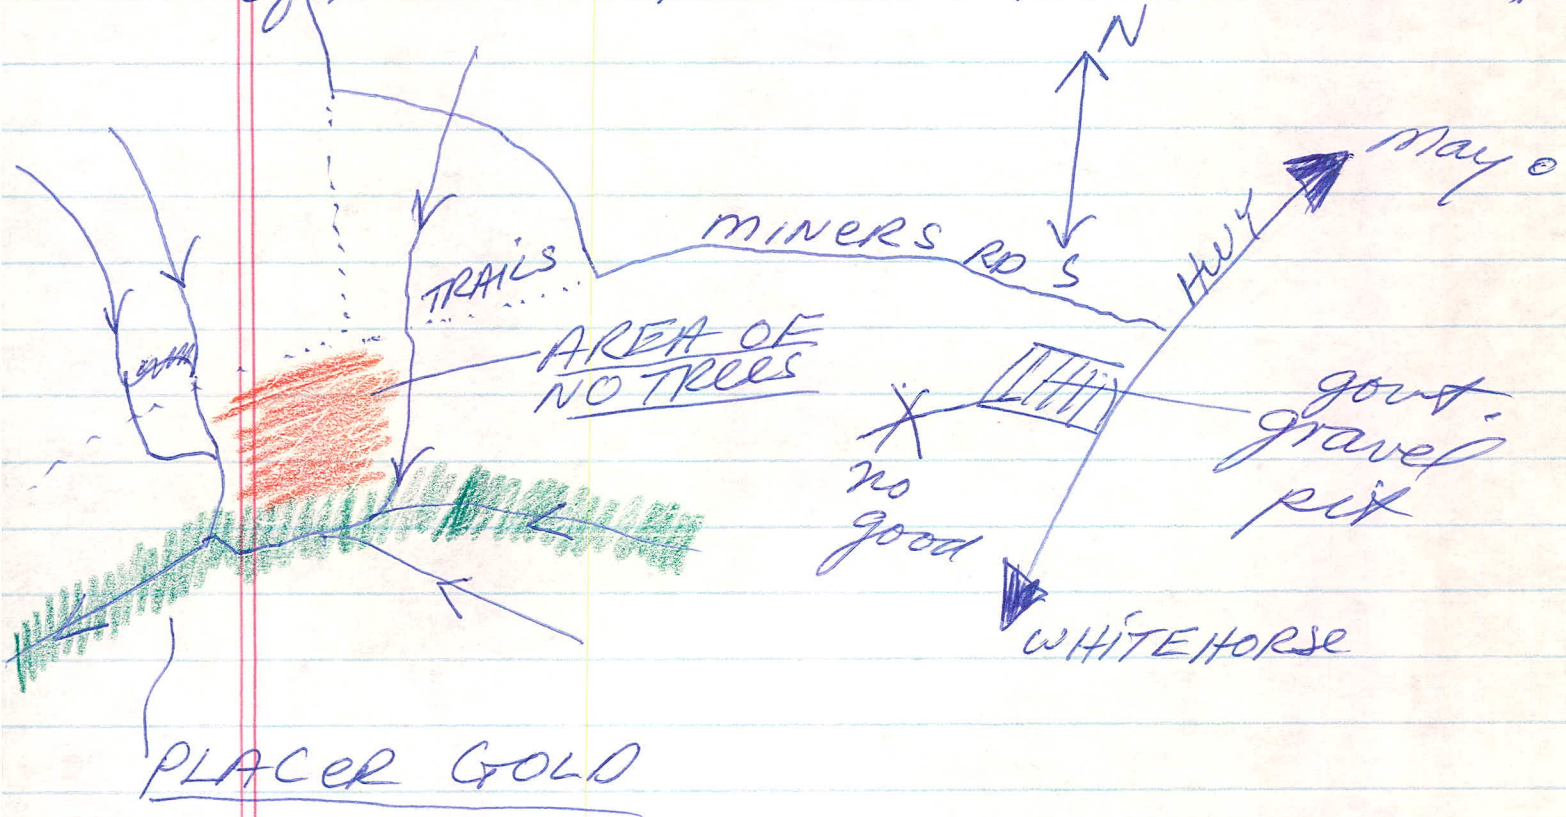 N
Mayo
HWY
MINERS RD
S
TRAILS
AREA OF
NO TREES
govt.
gravel
pit
no
good
WHITEHORSE
PLACER GOLD